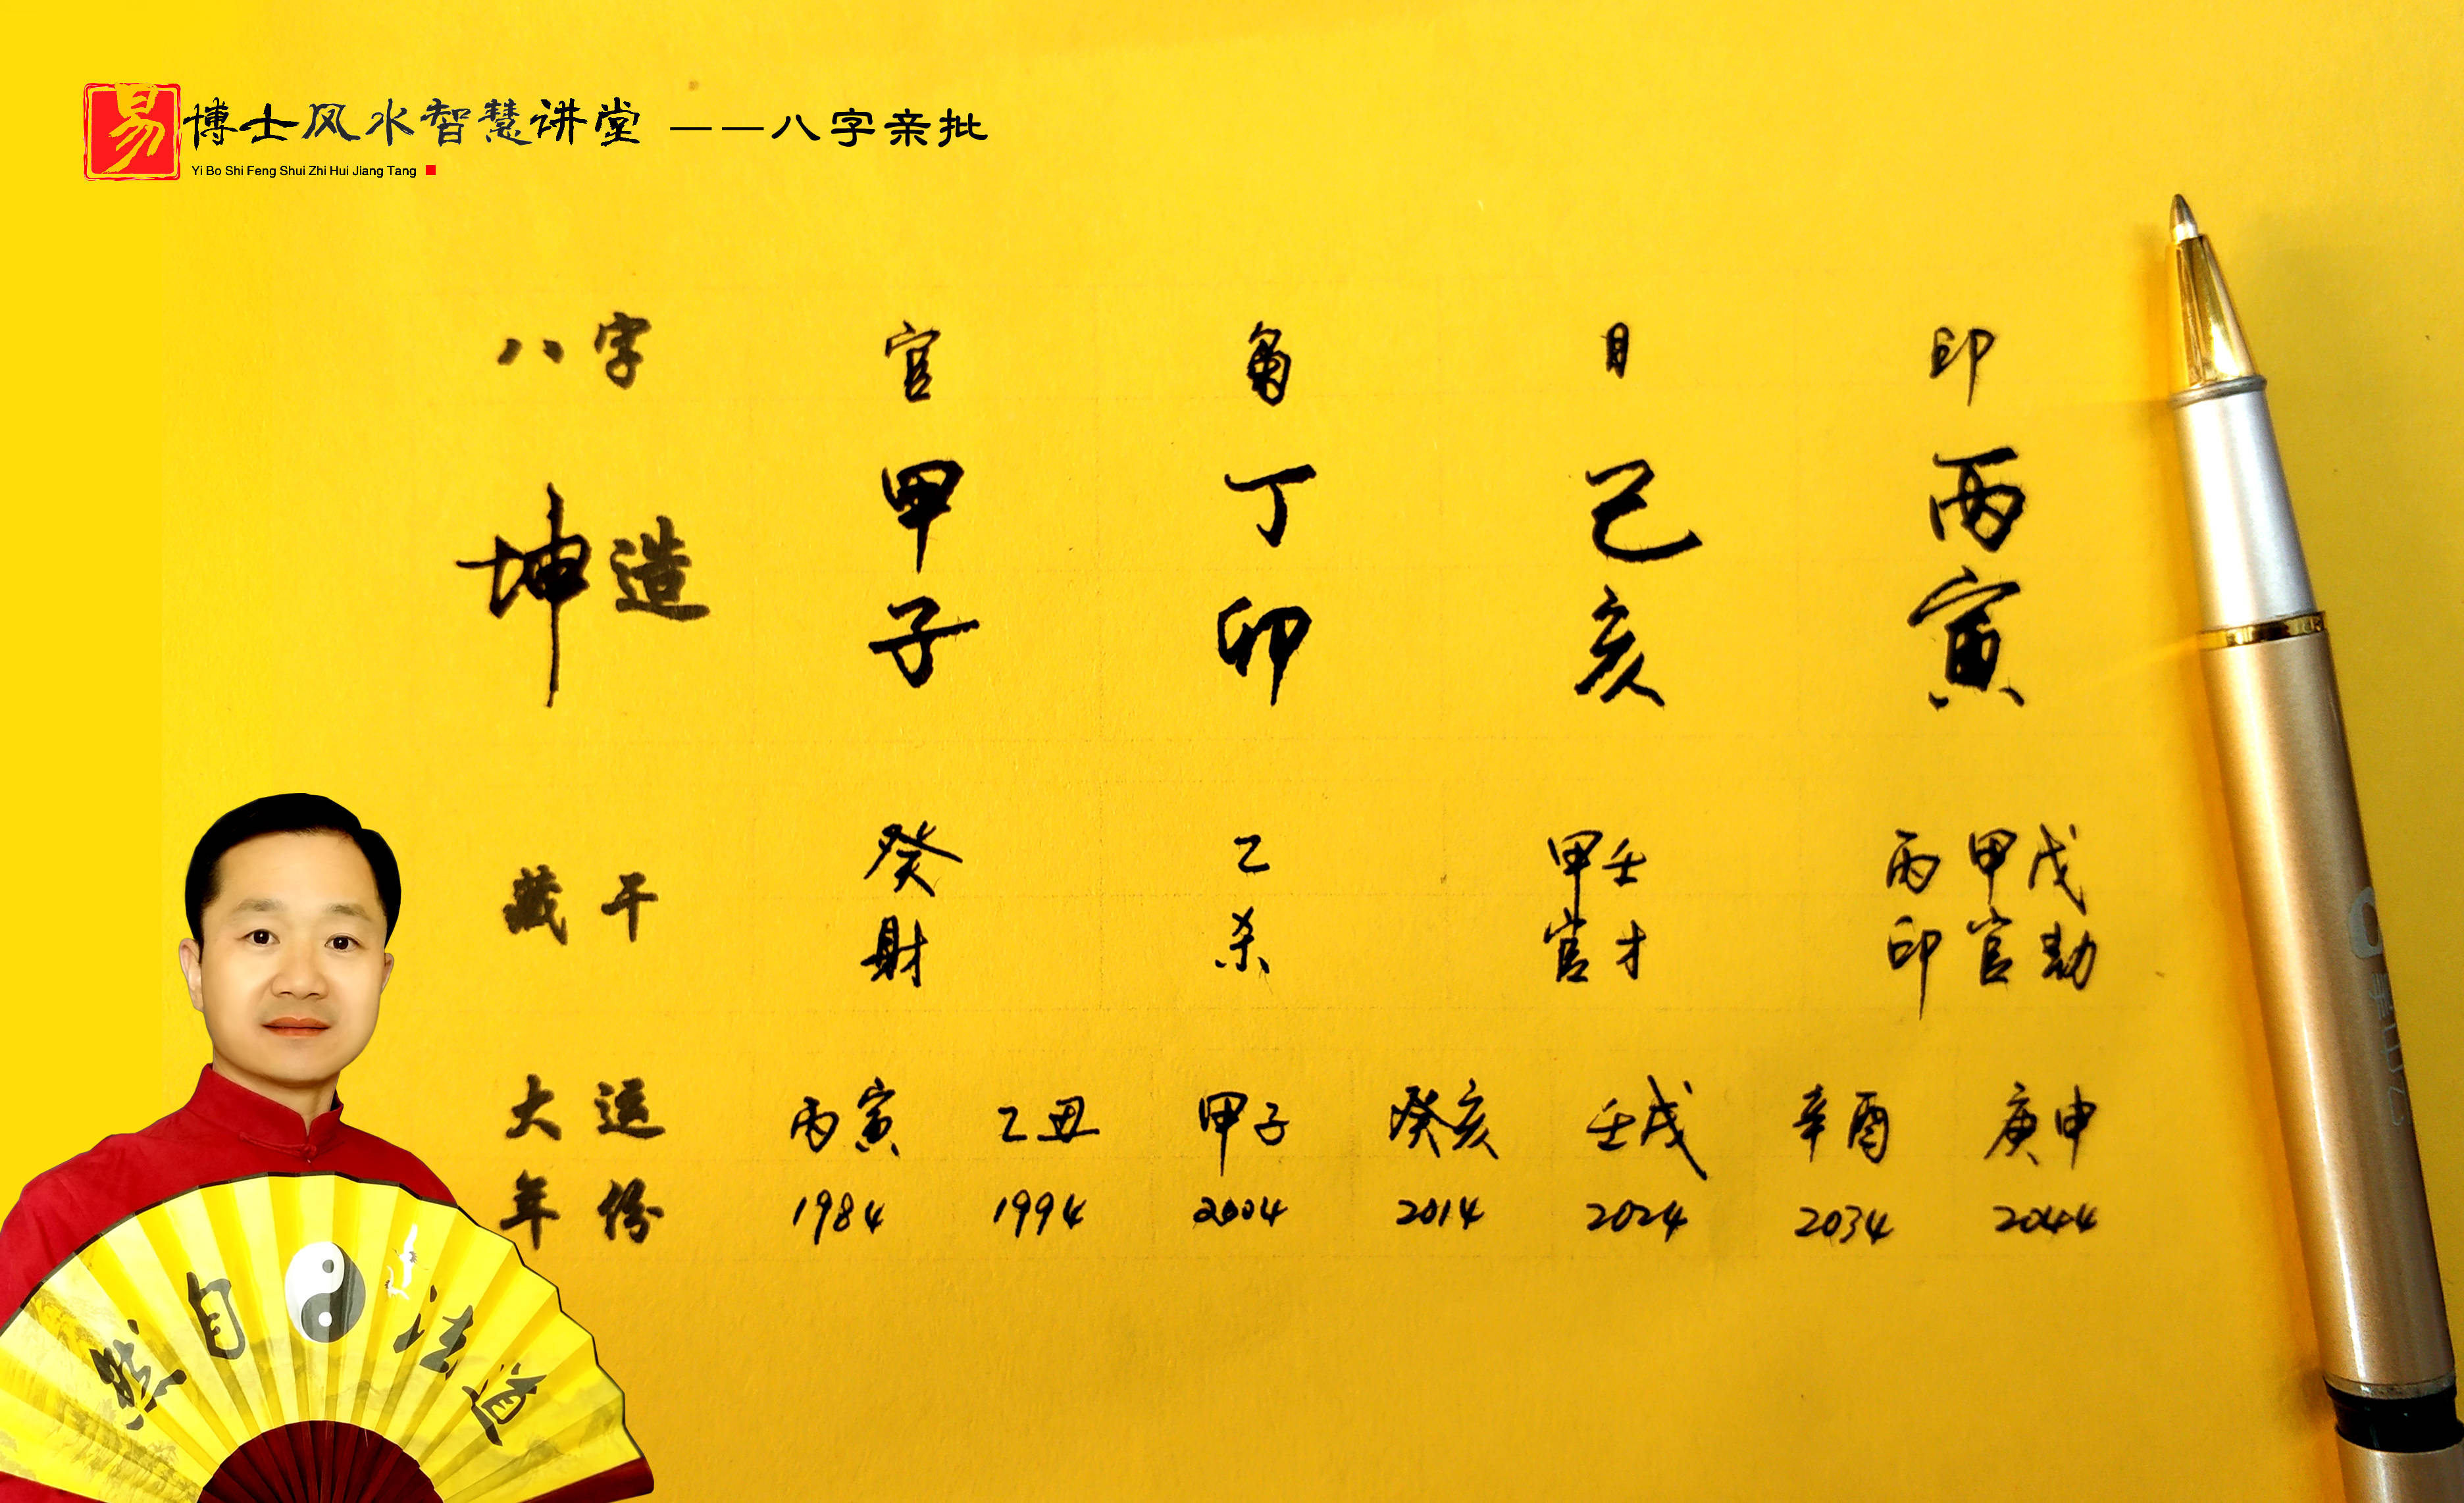 易博士风水智慧讲堂 ——八字亲批
Yi Bo Shi Feng Shui Zhi Hui Jiang Tang
八字 官 枭 日 印
坤造 甲 丁 己 丙
子 卯 亥 寅
藏干 癸 乙 甲壬 丙甲戊
財 杀 官才 印官劫
大运 丙寅 乙丑 甲子 癸亥 壬戌 辛酉 庚申
年份 1984 1994 2004 2014 2024 2034 2044
道法自然